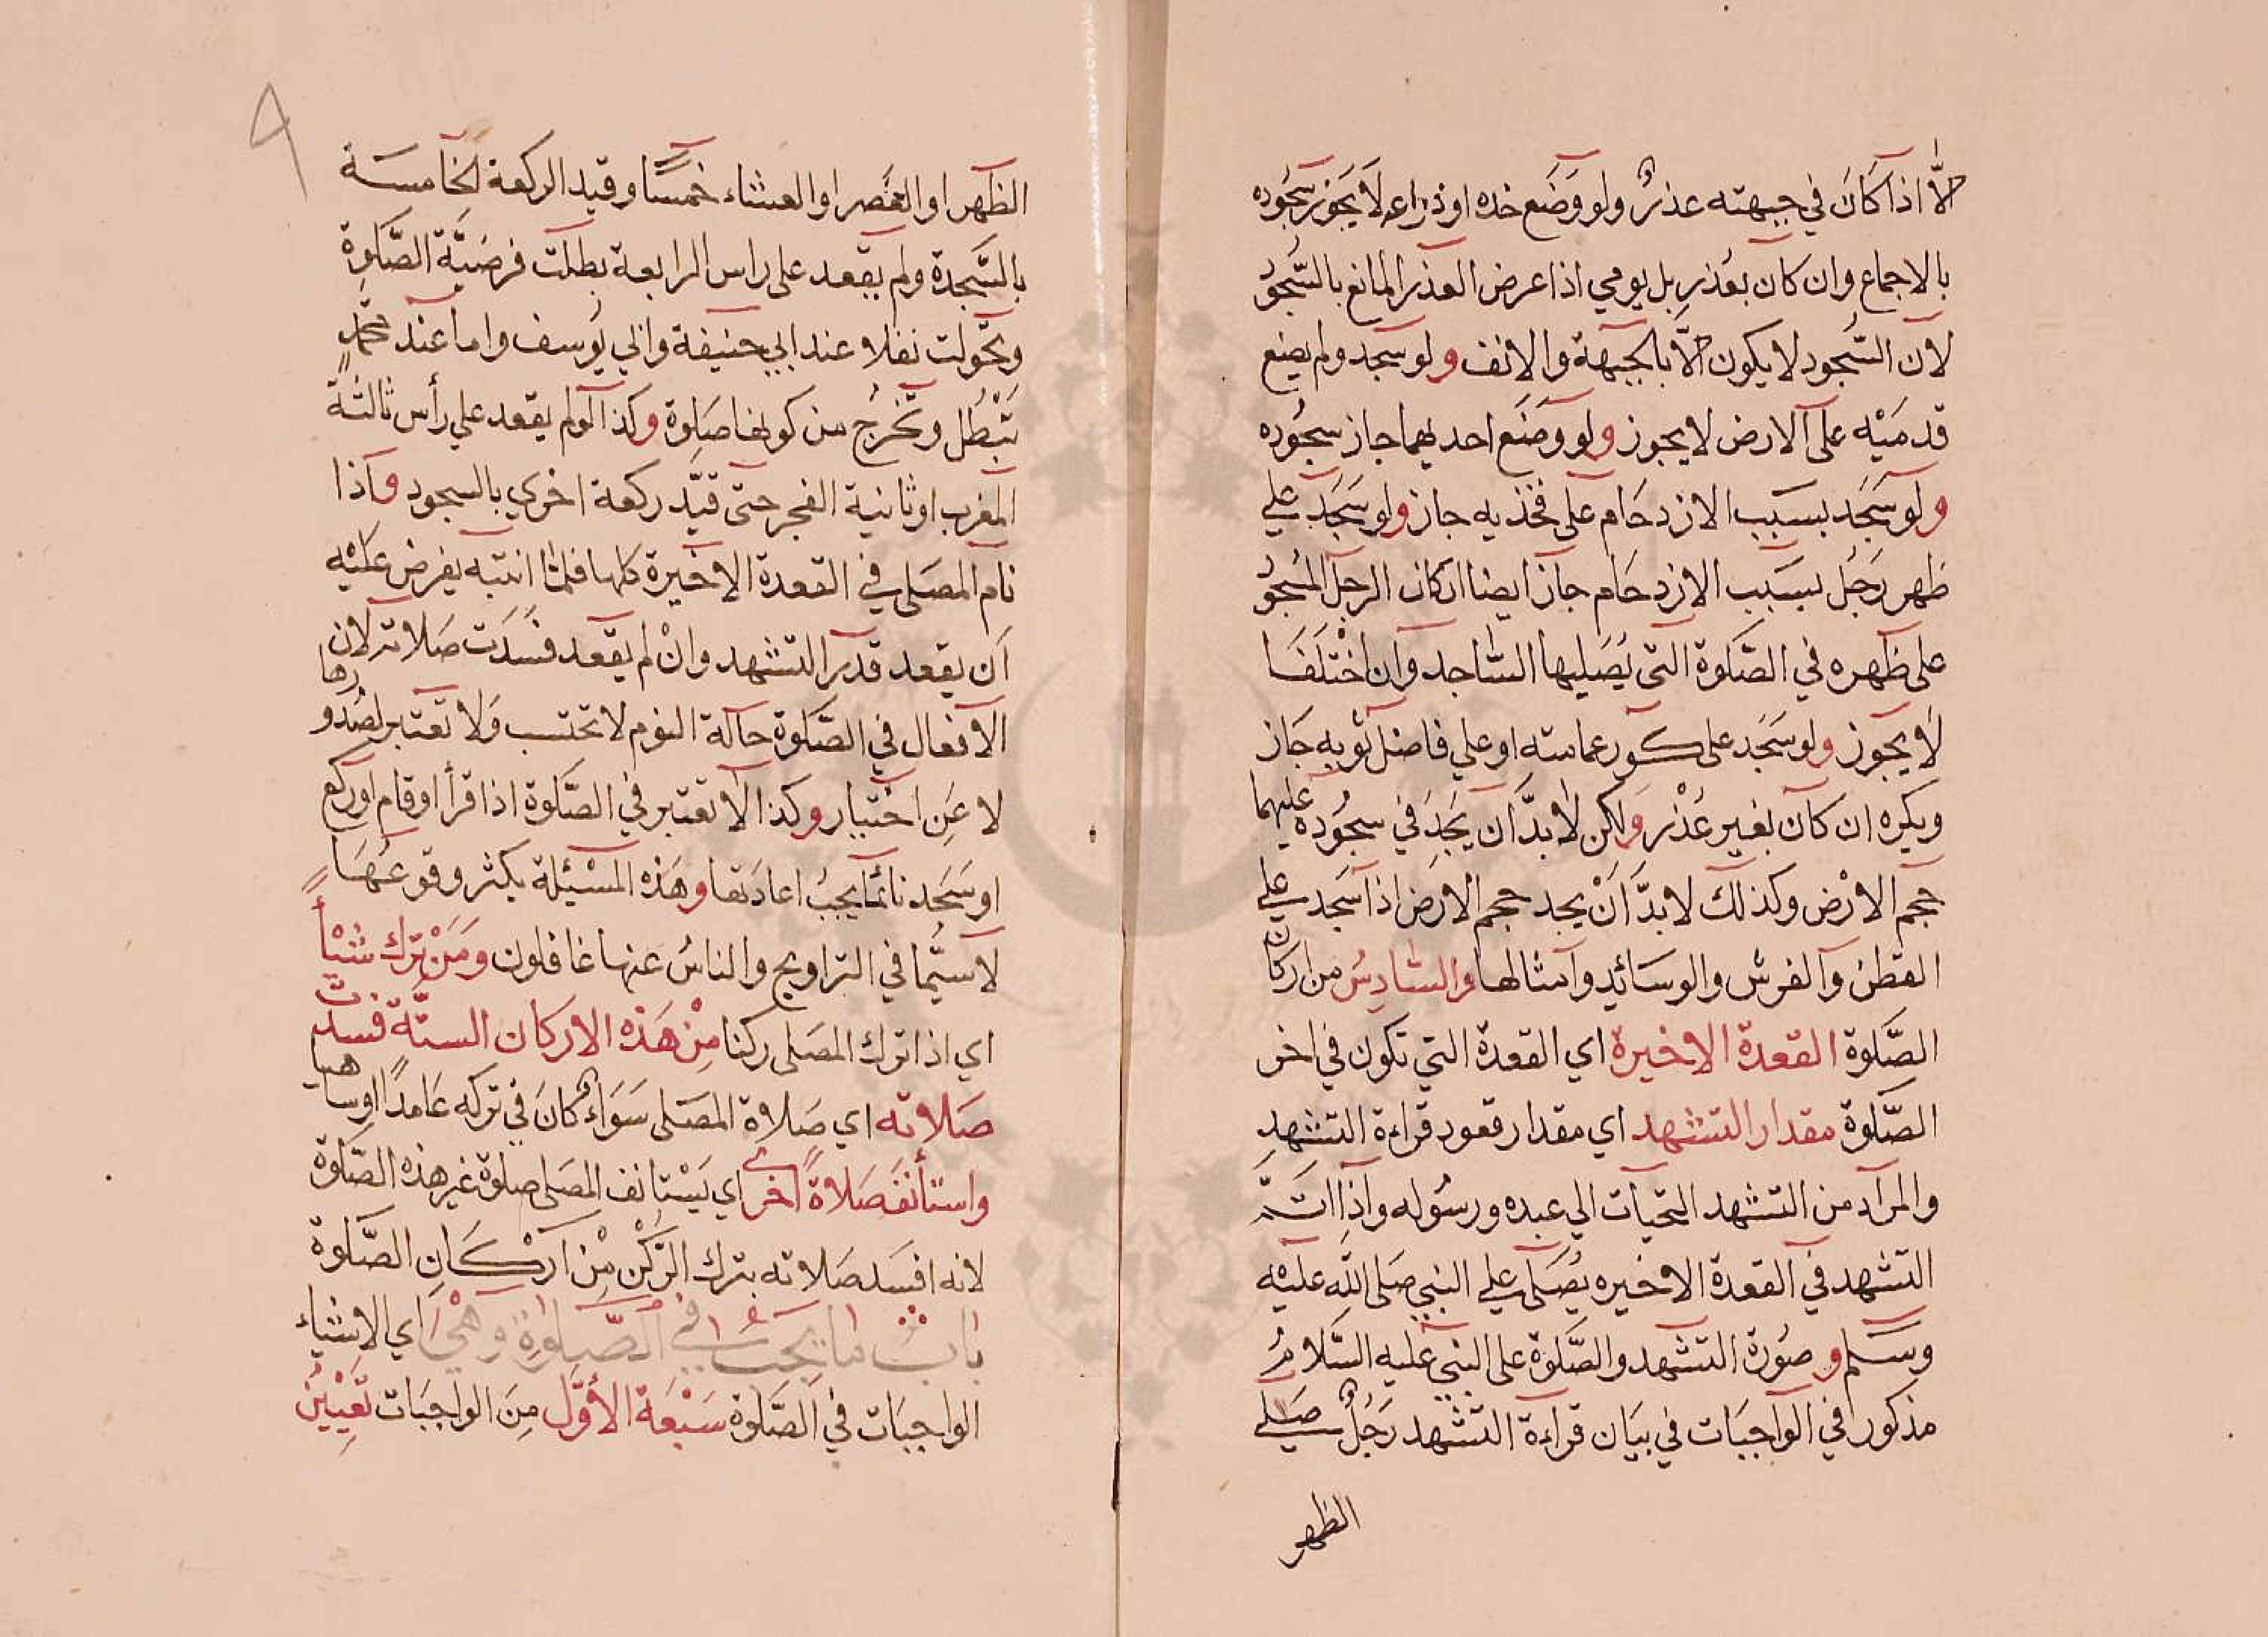 الّا اذا كانَ في جبهته عذرٌ ولو وَضَع خده او ذراعه لا يَجوز سجُوده
بالاجماع وان كان بعُذرٍ بل يومي اذا عرض العذر المانع بالسُّجُود
لان السُّجود لا يكون الّا بالجبهة والانف ولو سجد ولم يضع
قدمَيْه على الارض لا يجوز ولو وضَع احديهما جاز سجُوده
ولو سَجَد بسَبَب الازدحَام على فخذيه جاز ولو سَجَد علي
ظهر رَجُل بسَبَب الازدحَام جاز ايضا ان كان الرجل المسْجُود
على ظهره في الصَّلوة التى يُصَليها السَّاجد وان اخْتَلَفَا
لا يجوز ولو سَجَد على كور عمامته او علي فاضل ثوبه جَاز
ويكره ان كان بغير عُذْر وَلكن لا بدَّ ان يَجَد في سجُوده عليهما
حجم الارْض وكذلك لا بدَّ اَنْ يجد حجم الارض اذا سَجد علي
القطن والفرش والوسَائد وامثالها والسَّادسُ من اركان
الصَّلوة القعدة الاخيرة اي القعدة التي تكون في اخر
الصَّلوة مقدار التشهد اي مقدار قعود قراءة التشهدِ
والمراد من التشهد التحيات الي عبده ورسُوله واذا اتمَّ
التشهد في القعدة الاخيره يُصَلى علي النبي صَلى اللّه عليْه
وسَلم وصُورة التشهد والصَّلوة على النبي عليه السَّلامُ
مذكور في الواجبَات في بيَان قراءة التشهد رَجُلٌ صَلي
الظهر
الظهر او العَصر او العشاء خمسًا وقيد الركعة الخامسَة
بالسَّجدة ولم يقعد على راس الرابعة بطلت فرضيَّة الصَّلوةِ
وتحَولت نفلا عند ابي حنيفة وابي يُوسف واما عند محمدٍ
تَبْطُل وتَخْرجُ من كونها صَلوة وكذا لو لم يقعد علي رأس ثالثة
المغرب او ثانية الفجر حتى قيَّد ركعة اخري بالسجود واذا
نام المصَلى في القعدة الاخيرة كلها فلمّا انتبه يفرض عليْه
اَن يقعد قدر التشهد وانْ لم يقعد فسَدَت صَلاته لان
الافعال في الصَّلوة حالة النوم لا تحتسب وَلا تعتبر لصُدورها
لا عَنِ اختيار وكذا لا تعتبر في الصَّلوة اذا قرأ او قام او ركع
او سَجَد نائمًا يجبُ اعادَتها وهَذه المسْئلة يكثر وقوعُهَا
لا سيَّما في التراويح والناسُ عنها غافلون ومَنْ ترك شيْأً
اي اذا ترك المصَلى ركنا مِنْ هَذه الاركان الستَّة فسدت
صَلاته اي صَلاة المصَلى سَوَاءٌ كانَ في تركه عَامدًا او ساهيا
واستأنفَ صَلاةً اخرى اي يَسْتانف المصَلى صلوة غير هذه الصَّلوة
لانه افسَد صَلاته بترك الرُّكْن مْن اركَانِ الصَّلوة
بابُ ما يَجبُ في الصَّلوةِ وَهْيَ اي الاشياء
الواجبَات في الصَّلوة سَبْعَة الأوَّل مِنَ الواجبَات تعَيِيْنُ